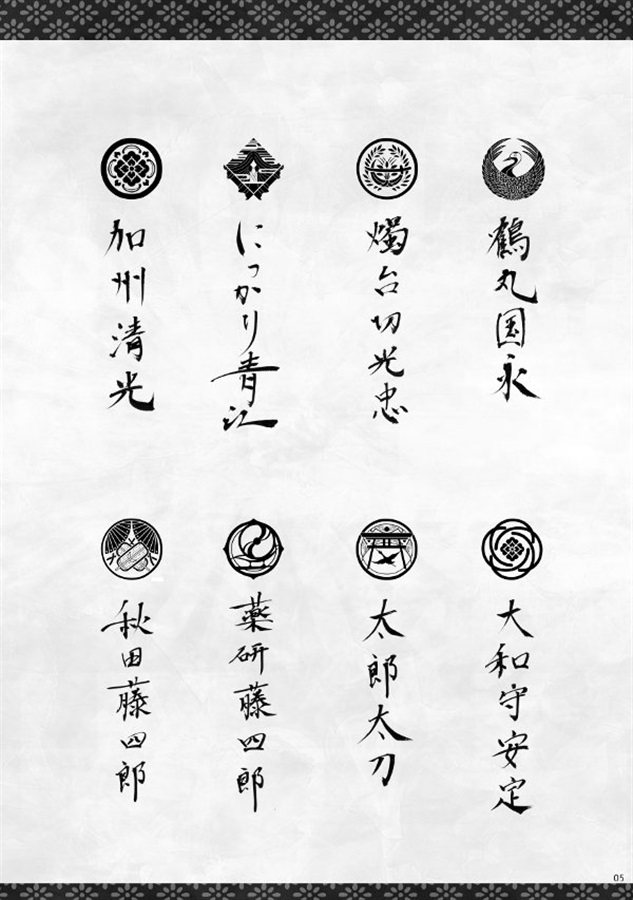 鶴丸国永
燭台切光忠
にっかり青江
加州清光
大和守安定
太郎太刀
薬研藤四郎
秋田藤四郎
05